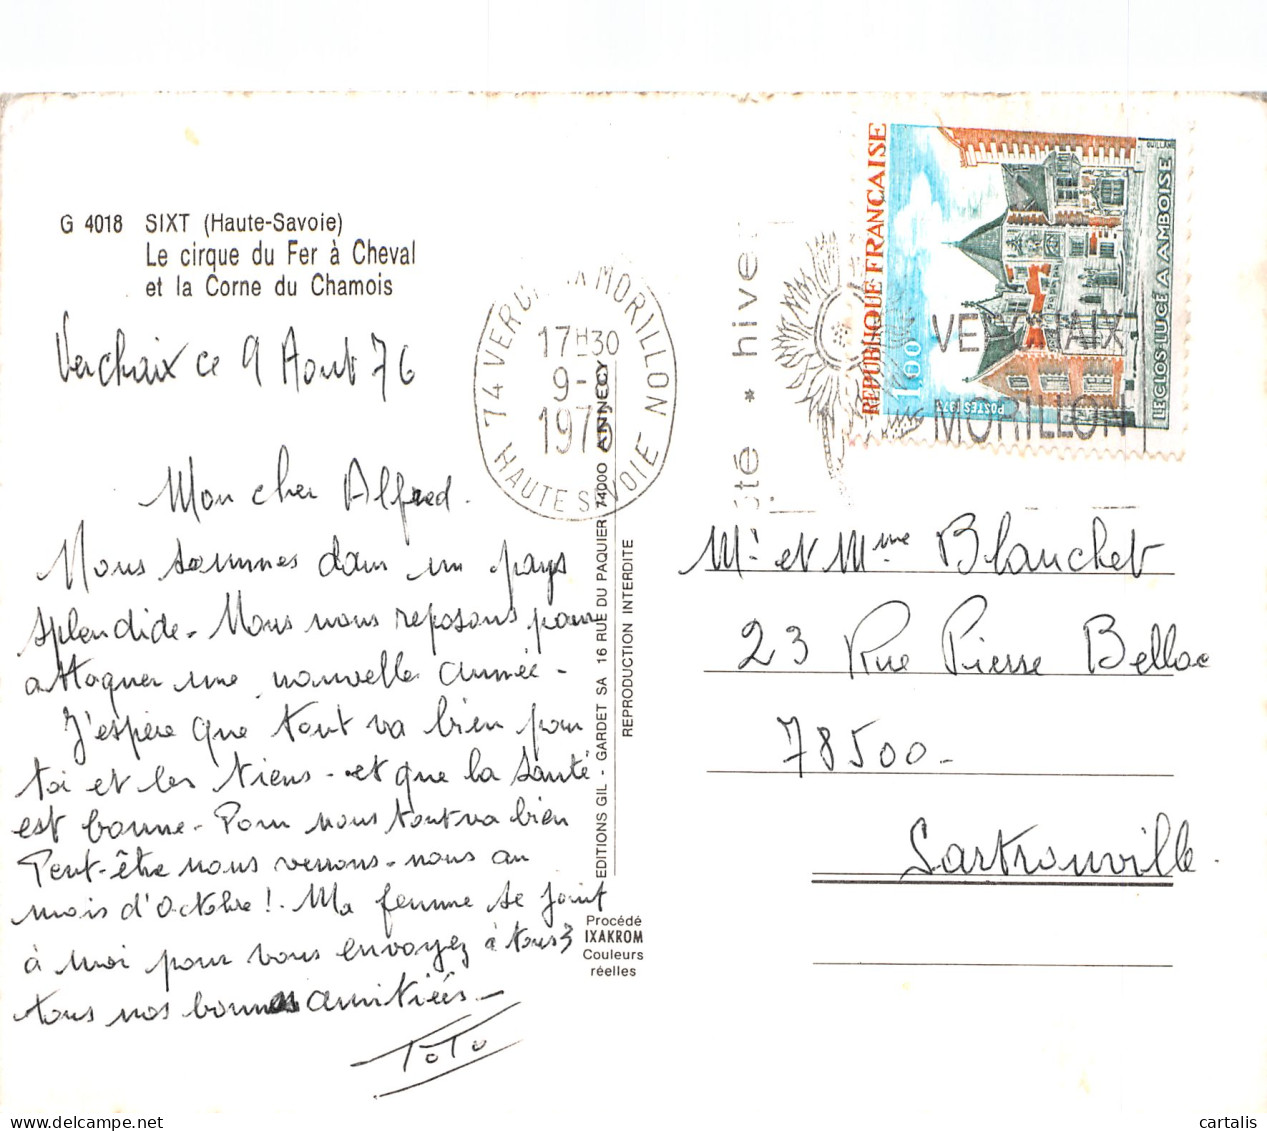 G 4018 SIXT (Haute-Savoie)
Le cirque du Fer à Cheval
et la Corne du Chamois
Verchaix ce 9 Aout 76
Mon cher Alfred.
Nous sommes dans un pays
splendide. Nous nous reposons pour
attaquer une nouvelle année -
J'espère que tout va bien pour
toi et les tiens - et que la santé
est bonne. Pour nous tout va bien
Peut-être nous verrons-nous au
mois d'octobre !. Ma femme se joint
à moi pour vous envoyez à tous 3
tous nos bonnes amitiés -
ToTo
74 VERCHAIX MORILLON
17H30
9-
1976
HAUTE SAVOIE
EDITIONS GIL - GARDET SA 16 RUE DU PAQUIER 74000 ANNECY
REPRODUCTION INTERDITE
Procédé
IXAKROM
Couleurs
réelles
été * hiver
VERCHAIX
MORILLON
REPUBLIQUE FRANÇAISE
1,00
POSTES 1973
LE CLOS LUCE A AMBOISE
Mr et Mme Blanchet
23 Rue Pierre Belloc
78500 -
Sartrouville.
cartalis